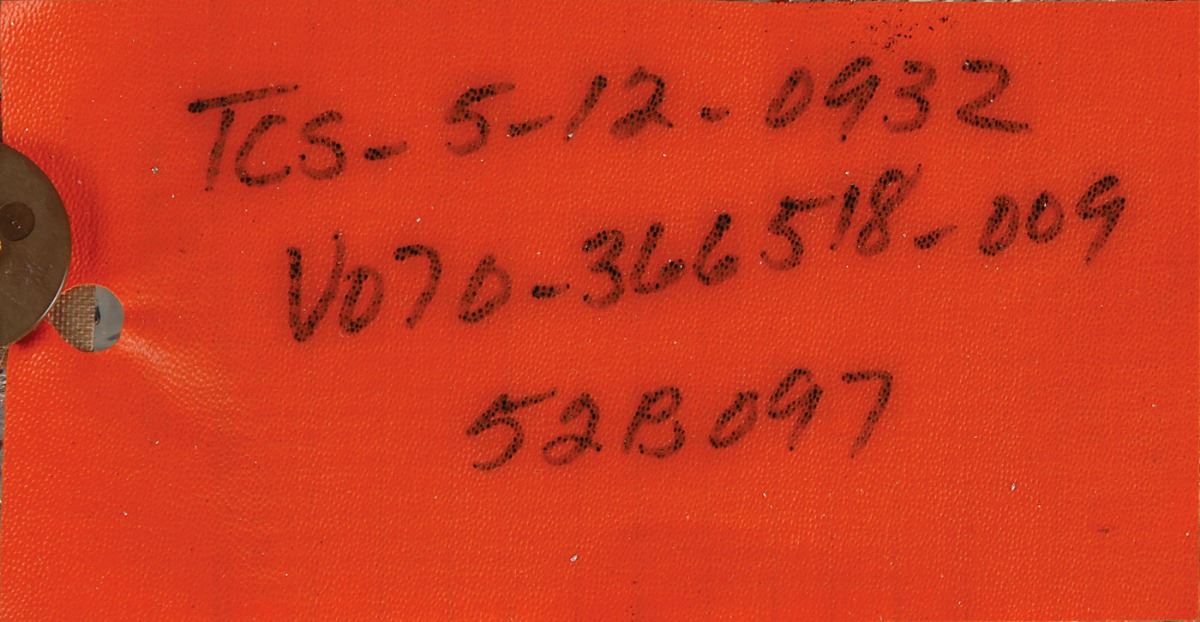 TCS-5-12-0932
V070-366518-009
52B097